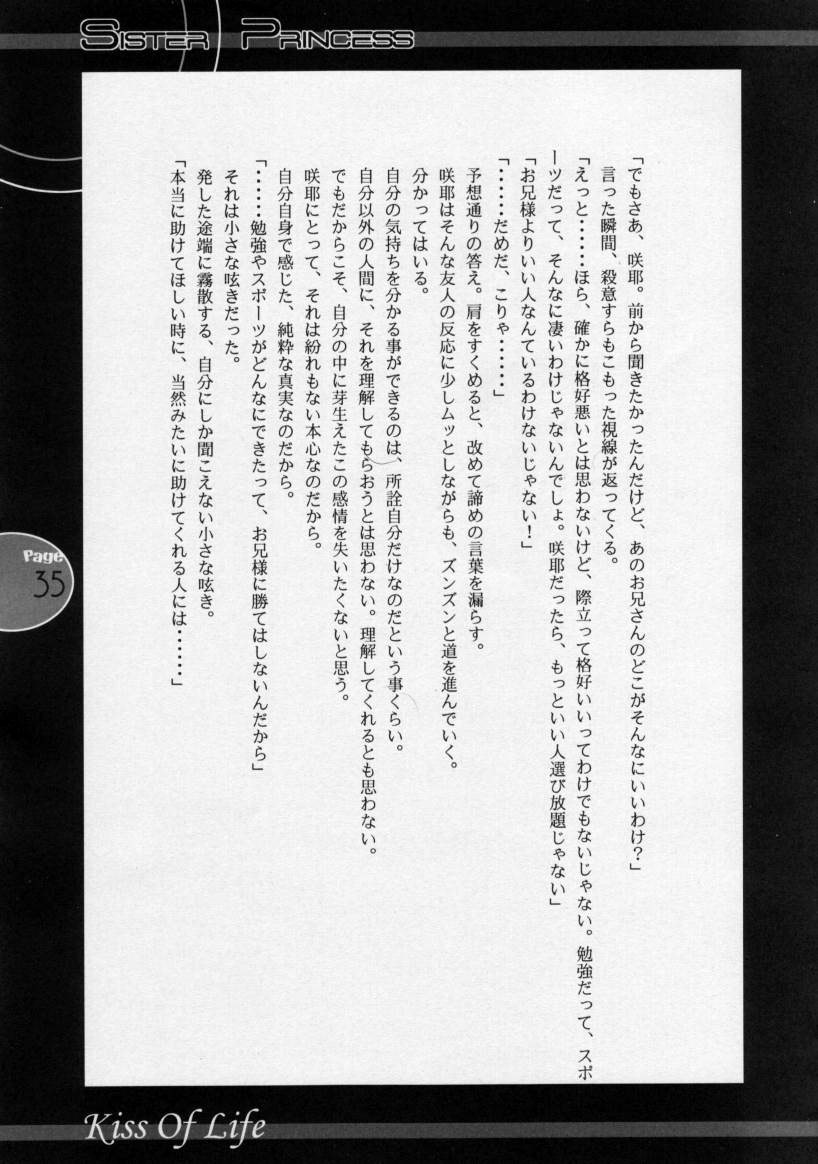 SISTER PRINCESS
「でもさあ、咲耶。前から聞きたかったんだけど、あのお兄さんのどこがそんなにいいわけ？」
言った瞬間、殺意すらもこもった視線が返ってくる。
「えっと・・・・・・ほら、確かに格好悪いとは思わないけど、際立って格好いいってわけでもないじゃない。勉強だって、スポ
ーツだって、そんなに凄いわけじゃないんでしょ。咲耶だったら、もっといい人選び放題じゃない」
「お兄様よりいい人なんているわけないじゃない！」
「・・・・・・だめだ、こりゃ・・・・・・」
予想通りの答え。肩をすくめると、改めて諦めの言葉を漏らす。
咲耶はそんな友人の反応に少しムッとしながらも、ズンズンと道を進んでいく。
分かってはいる。
自分の気持ちを分かる事ができるのは、所詮自分だけなのだという事くらい。
自分以外の人間に、それを理解してもらおうとは思わない。理解してくれるとも思わない。
でもだからこそ、自分の中に芽生えたこの感情を失いたくないと思う。
咲耶にとって、それは紛れもない本心なのだから。
自分自身で感じた、純粋な真実なのだから。
「・・・・・・勉強やスポーツがどんなにできたって、お兄様に勝てはしないんだから」
それは小さな呟きだった。
発した途端に霧散する、自分にしか聞こえない小さな呟き。
「本当に助けてほしい時に、当然みたいに助けてくれる人には・・・・・・」
Page
35
Kiss Of Life